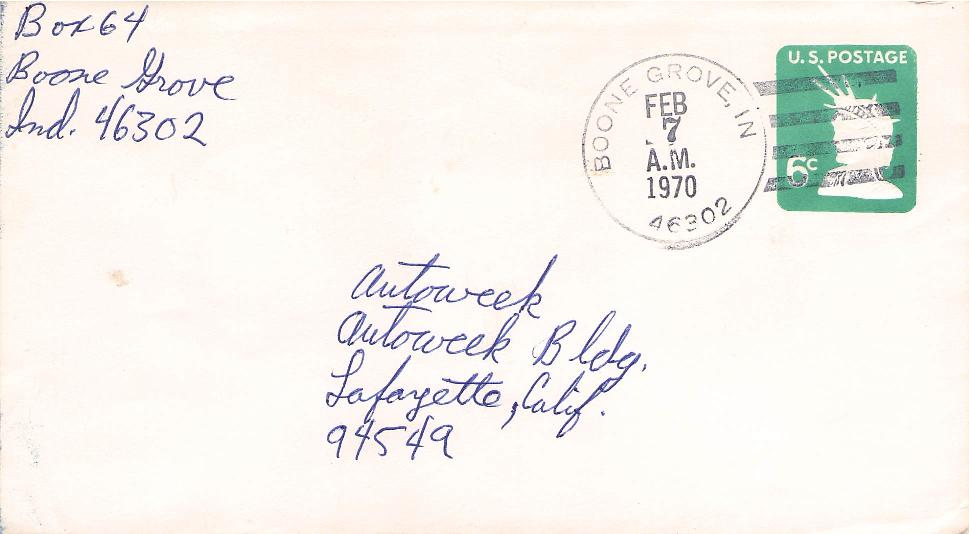 Box 64
Boone Grove
Ind. 46302
BOONE GROVE, IN
FEB
7
A.M.
1970
46302
U.S. POSTAGE
6c
Autoweek
Autoweek Bldg.
Lafayette, Calif.
94549